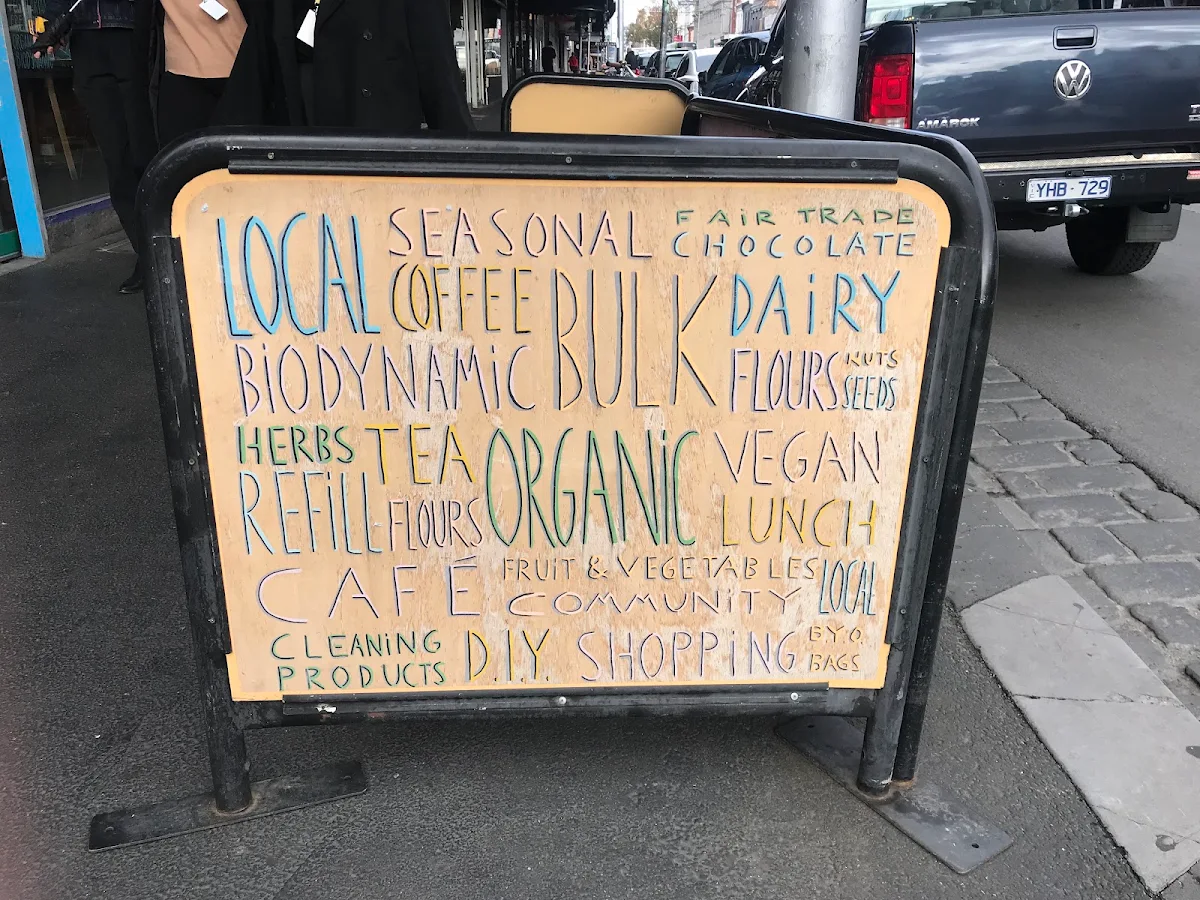 LOCAL SEASONAL FAIR TRADE
CHOCOLATE
COFFEE BULK DAIRY
BIODYNAMIC FLOURS NUTS
SEEDS
HERBS TEA ORGANIC VEGAN
REFILL FLOURS LUNCH
CAFÉ FRUIT & VEGETABLES LOCAL
COMMUNITY
CLEANING
PRODUCTS D.I.Y. SHOPPING B.Y.O.
BAGS
AMAROK
YHB·729